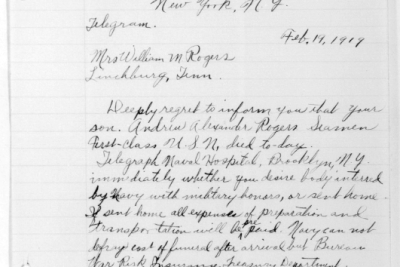 New York, N.Y.
Telegram.
Feb. 19, 1919
Mrs William M Rogers
Lynchburg, Tenn.
Deeply regret to inform you that your
son. Andrew Alexander Rogers Seamen
First-class U.S.N. died to-day.
Telegraph Naval Hospital, Brooklyn, N.Y.
immediately whether you desire body interred
by Navy with military honors, or sent home.
If sent home all expenses of preparation and
transportation will be pre paid. Navy can not
defray cost of funeral after arrival but Bureau
War Risk Insurance, Treasury Department